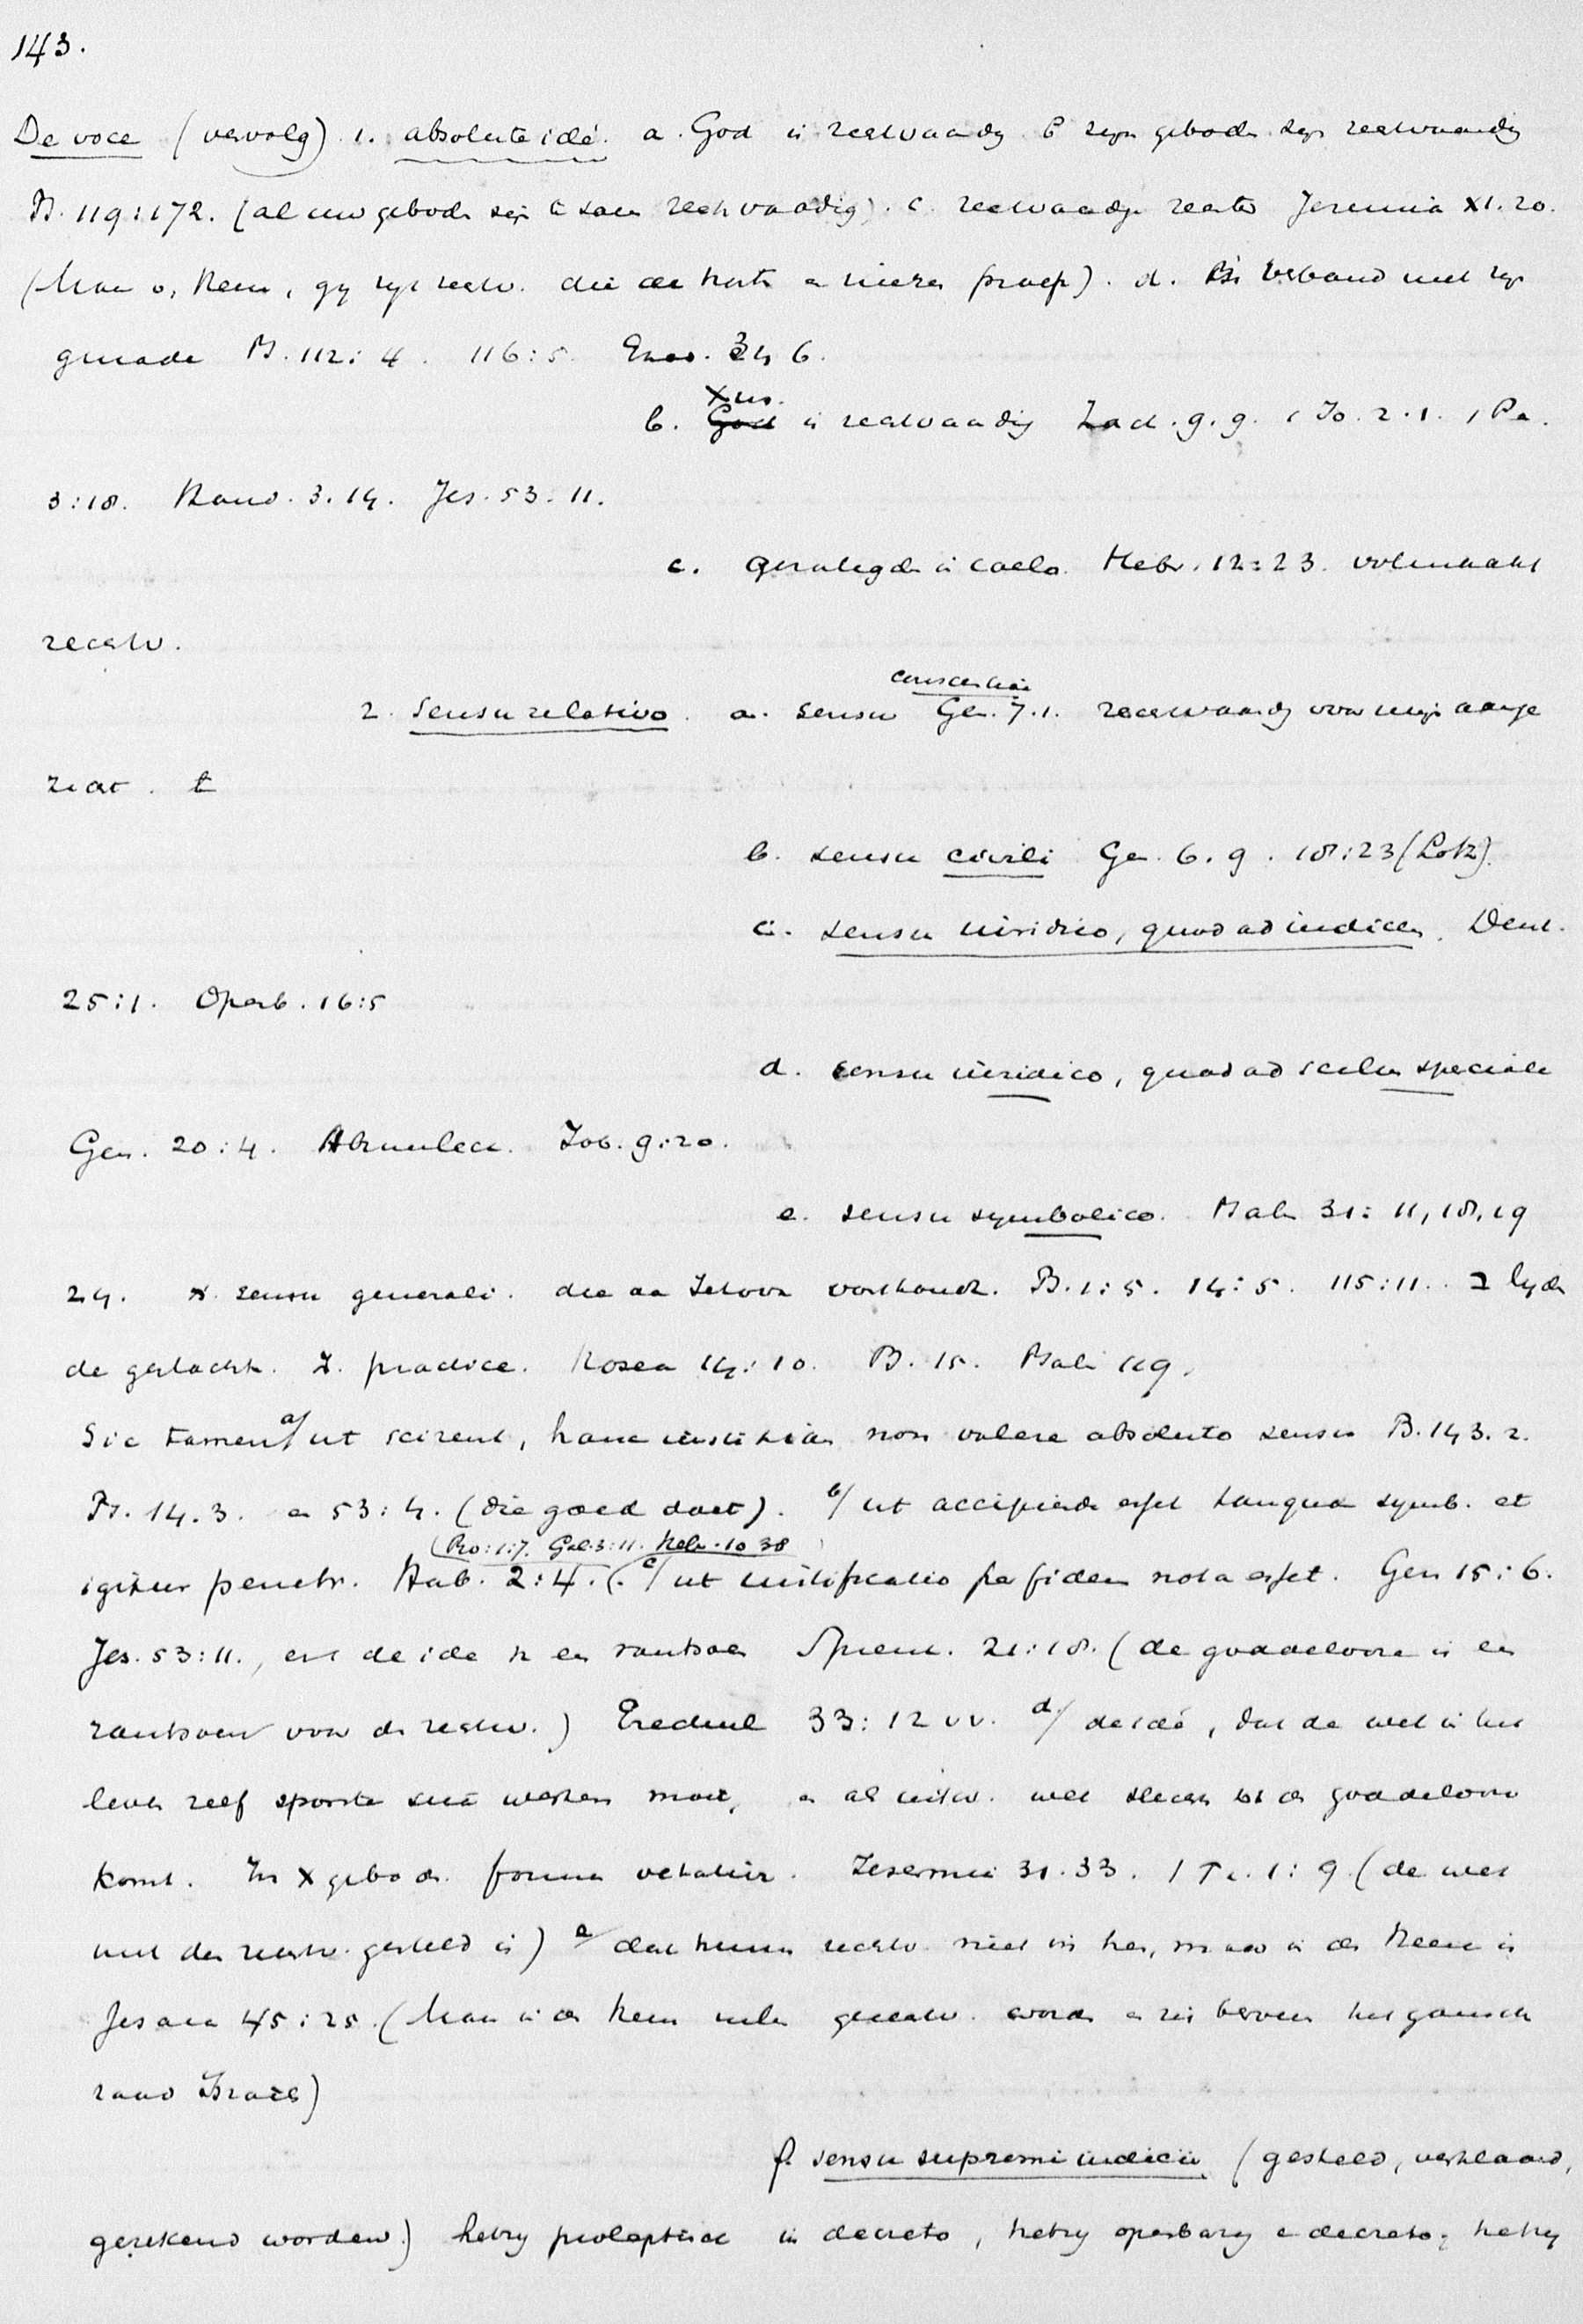 143.
De voce (vervolg) 1. absolute idé. a. God is rechtvaardig b zijn geboden zijn rechtvaardig
Ps. 119:172. (al uw geboden zijn te samen rechtvaardig). c. rechtvaardige rechter Jeremia XI.20.
(Maar o, Heere, gij zijt rechtv. die de harten en nieren proeft). d. In verband met zijn
genade Ps. 112:4. 116:5. Exod. 34 6.
Xus.
b. God is rechtvaardig Zach. 9.9. 1 Jo. 2.1. 1 Pe.
3:18. Hand. 3.14. Jes. 53.11.
c. gezaligden in caelo. Hebr. 12:23. volmaakt
rechtv.
conscientiae
2. Sensu relativo. a. sensu Gen. 7.1. rechtvaardig voor mijn aange
zicht. t
b. sensu civili Gen. 6.9. 18:23 (Lotz).
c. sensu iuridico, quod ad iudicem. Deut.
25:1. Openb. 16:5
d. sensu iuridico, quod ad scelus speciale
Gen. 20:4. Abimelech. Job. 9:20.
e. sensu symbolico. Psalm 31: 11, 18, 19
24. sensu generali. die aan Jehova vasthouden. Ps. 1:5. 14:5. 115:11. ב lijden
de geslacht. practice. Hosea 14:10. Ps. 15. Psalm 119.
Sic tamen a/ ut scirent, hanc iustitiam non valere absoluto sensu Ps. 143.2.
Ps. 14.3. en 53:4. (die goed doet). b/ ut accipienda esset tanquam symb. et
(Ro: 1:7. Gal. 3:11. Hebr. 10 38
igitur penetr. Hab. 2:4. (. c/ ut iustificatio per fidem nota esset. Gen 15:6.
Jes. 53:11., en de idee v een rantsoen Spreuk. 21:18. (de goddelooze is een
rantsoen voor den rechtv.) Ezechiel 33:12 vv. d/ de idé, dat de wet in het
leven zelf sponte sua werken moet, en als wet slechts tot den goddeloozen
komt. In X geboden forma vetatur. Jeremia 31.33. 1 Ti. 1:9. (de wet
niet den rechtv. gesteld is) e/ dat hunne rechtv. niet in hen, maar in den Heere is
Jesaia 45:25. (Maar in den Heere zullen gerechtv. worden en zich beroemen het gansche
zaad Israels)
f. sensu supremi iudicii. (gesteld, verklaard,
gerekend worden.) hetzij proleptisch in decreto, hetzij openbaring e decreto, hetzij